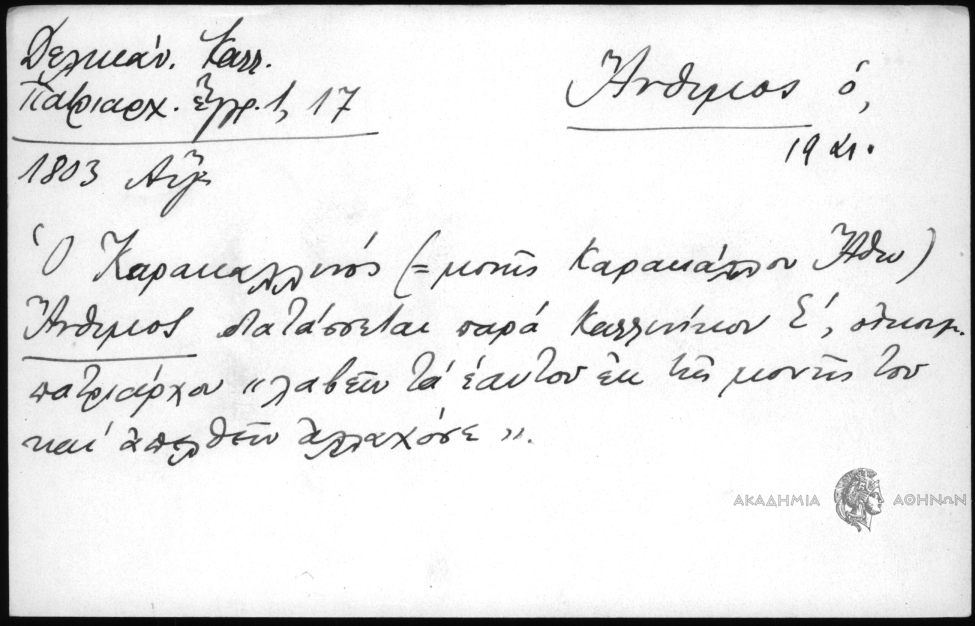 Δελικάν. Καλλ.
Πατριαρχ. ἔγγρ. 1, 17
Ἄνθιμος ὁ,
19 αι.
1803 Αὔγ
Ὁ Καρακαλληνός (= μονῆς Καρακάλλου Ἄθω)
Ἄνθιμος διατάσσεται παρά Καλλινίκου Ε', οἰκουμ.
πατριάρχου «λαβεῖν τά ἑαυτου ἐκ τῆς μονῆς του
και ἀπελθεῖν ἀλλαχόσε».
ΑΚΑΔΗΜΙΑ ΑΘΗΝΩΝ